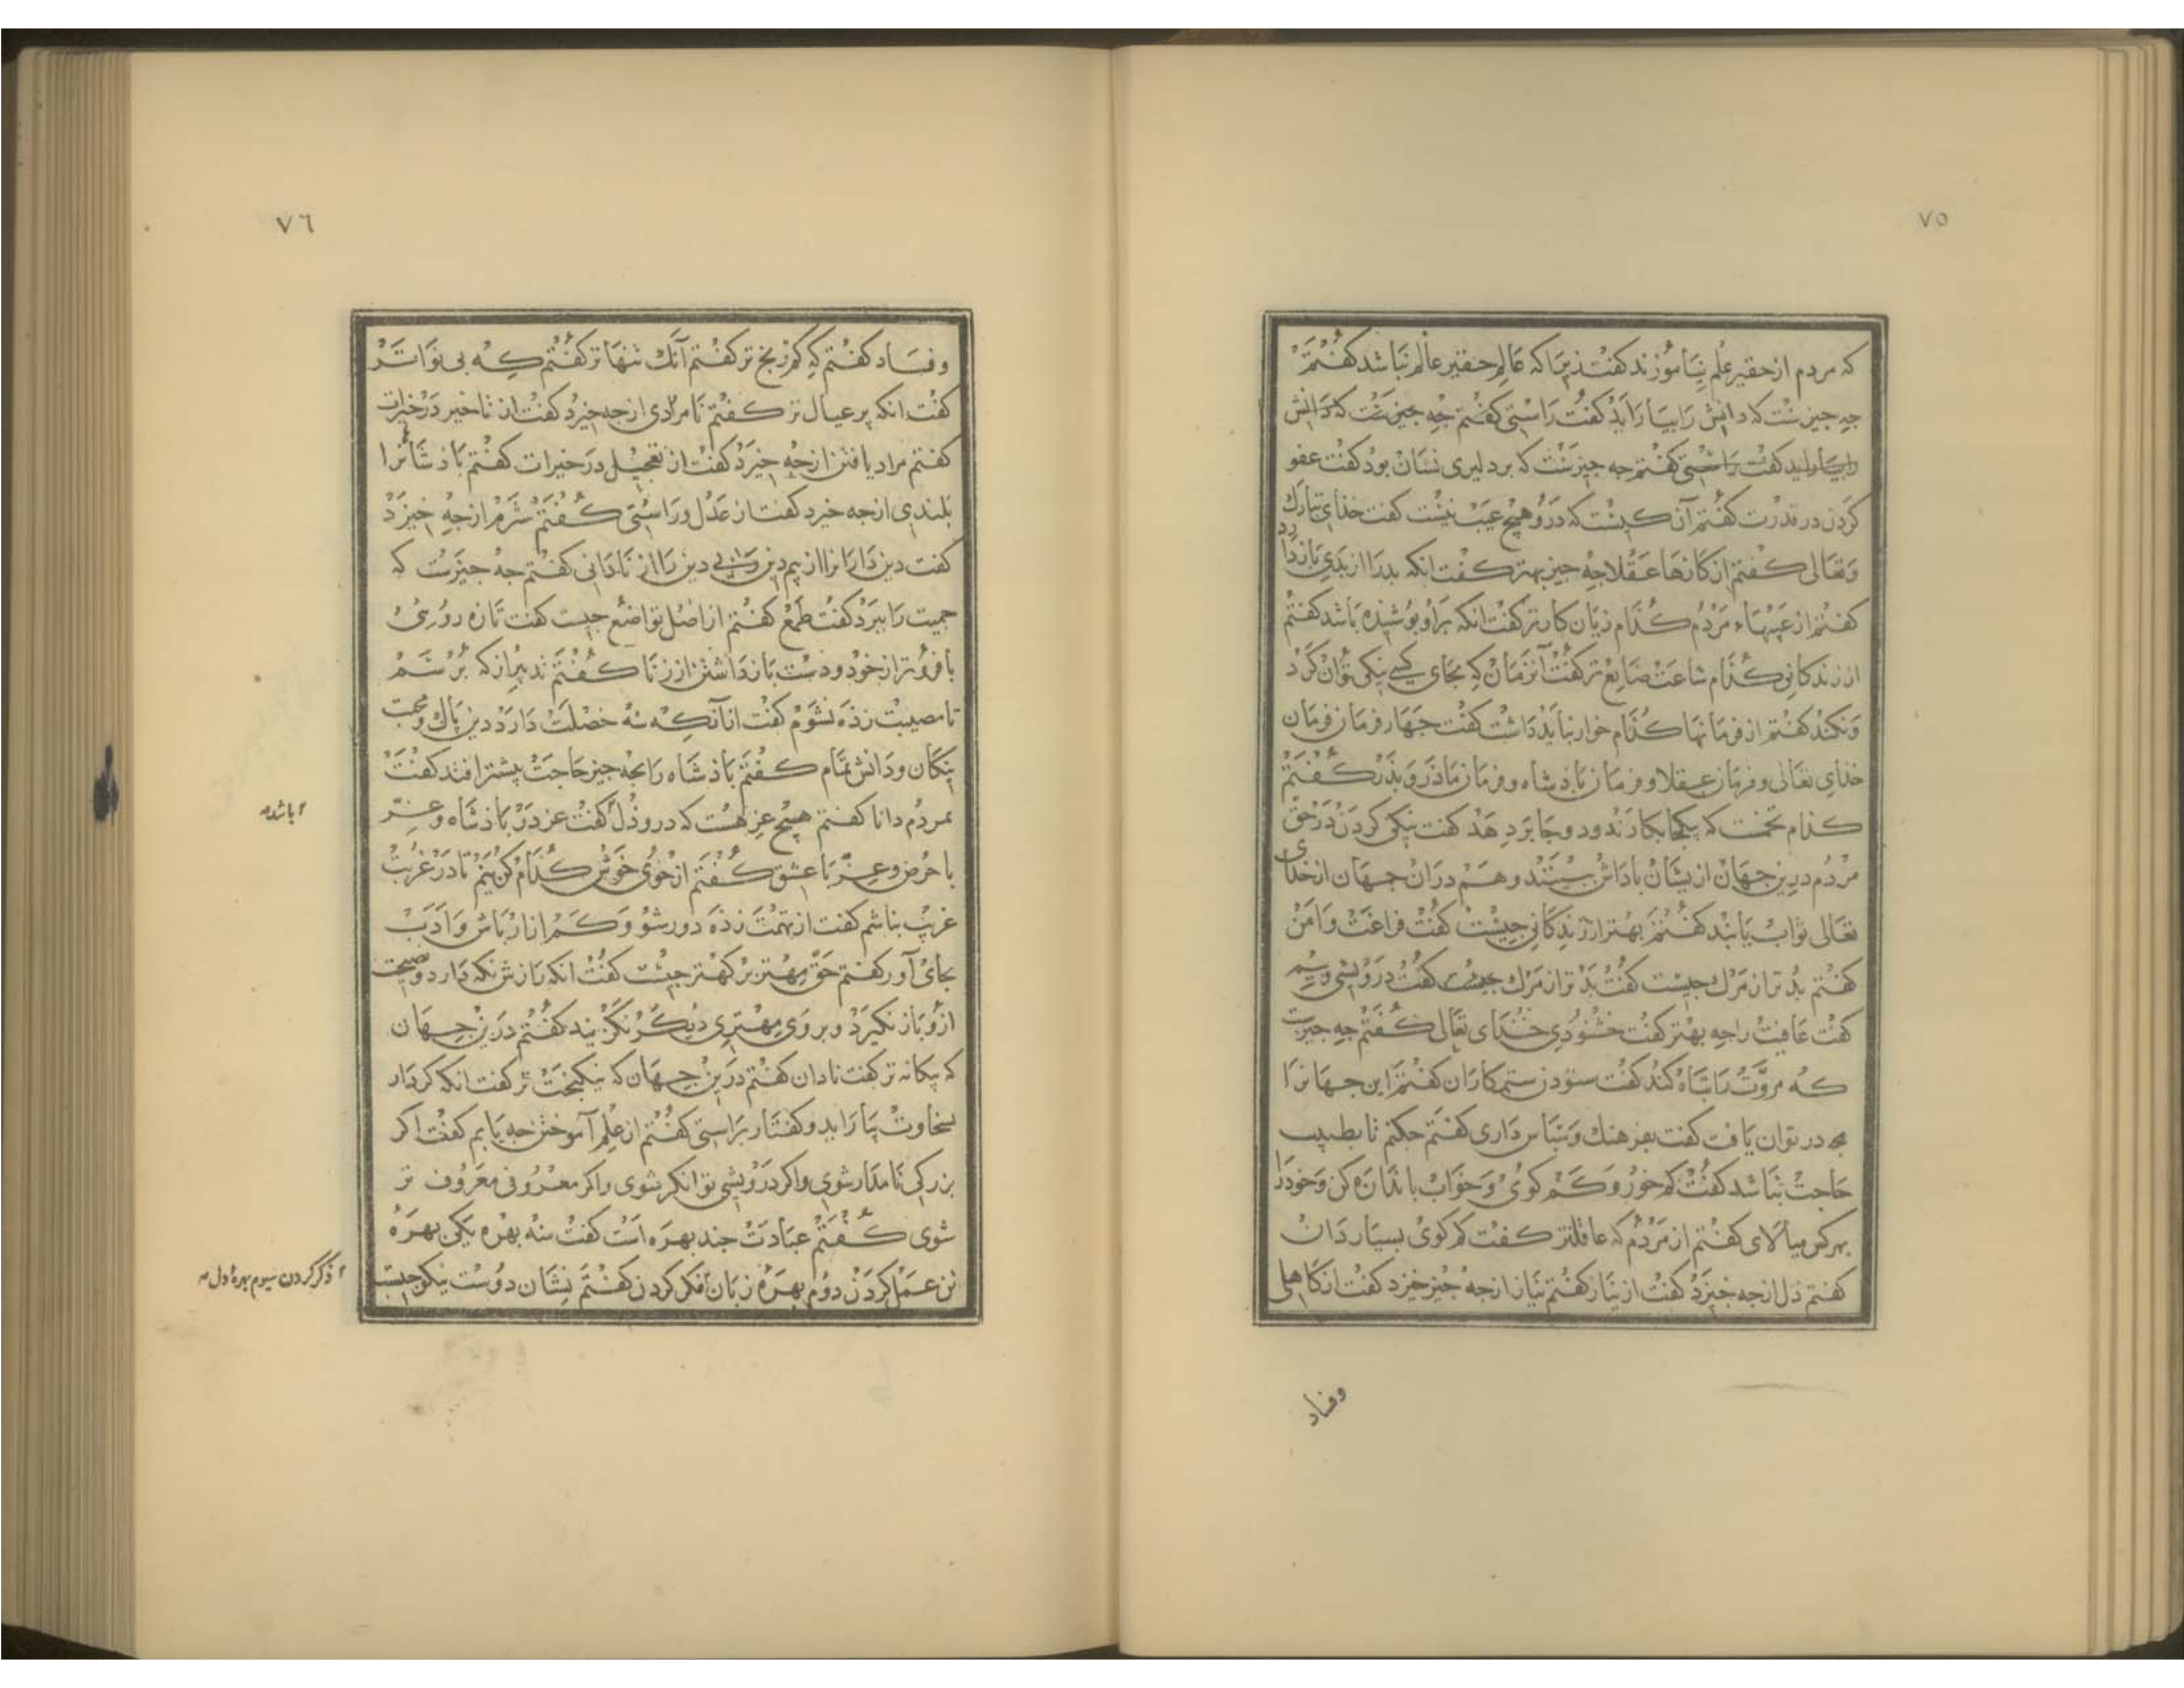 ٧٥
که مردم از حقیر علم نیاموزند کفت ذیرا که عالم حقیر عالم نباشد کفتم
جه جیزست که دانش را بیاراید کفت راستی کفتم جه جیزست که دانش
را بیاراید کفت راستی کفتم جه جیزست که بر دلیری نشان بود کفت عفو
کردن در قدرت کفتم آن کیست که درو هیچ عیب نیست کفت خذای تبارک
وتعالی کفتم از کارها عقلا جه جیز بهتر کفت انکه بد را از بدی بازدارد
کفتم از عیبهاء مردم کذام زیان کارتر کفت انکه براو بوشیذه باشد کفتم
از زندکانی کذام ساعت ضایع تر کفت آنزمان که بجای کسی نیکی توان کرد
ونکند کفتم از فرمانها کذام خوار نباید داشت کفت جهار فرمان فرمان
خذای تعالی وفرمان عقلا وفرمان باذشاه وفرمان ماذر وبذر کفتم
کذام تخمست که یکجا بکارند ودو جا بر دهد کفت نیکی کردن در حق
مردم درین جهان ازیشان باداش بینند وهم دران جهان از خذای
تعالی ثواب یابند کفتم بهتر از زندکانی جیست کفت فراغت وامن
کفتم بدتر از مرک جیست کفت بدتر از مرک جیست کفت درویشی وبیم
کفت عاقبت را جه بهتر کفت خشنودی خذای تعالی کفتم جه جیزست
که مروت را تباه کند کفت ستودن ستمکاران کفتم این جهانرا
به در توان یافت کفت بفرهنک وسباس داری کفتم جکنم تا بطبیب
حاجت نباشد کفت کم خور وکم کوی وخواب باندازه کن وخود را
بهرکس میالای کفتم از مردم که عاقلتر کفت کم کوی بسیار دان
کفتم ذل از جه خیزد کفت از نیاز کفتم نیاز از جه جیز خیزد کفت از کاهلی
وفساد
٧٦
وفساد کفتم که کم رنج تر کفتم آنک تنها تر کفتم که بی نواتر
کفت انکه بر عیال تر کفتم نامرادی از جه خیزد کفت از تاخیر در خیرات
کفتم مراد یافتن از جه خیزد کفت از تعجیل در خیرات کفتم باذشانرا
بلندی از جه خیزد کفت از عدل وراستی کفتم شرم از جه خیزد
کفت دین دارانرا از بیم دین وبی دین را از نادانی کفتم جه جیزست که
حمیت را ببرد کفت طمع کفتم از اصل تواضع جیست کفت تازه رویی
با فروتر از خود ودست بازداشتن از زنا کفتم تدبیر از که برسم
تا مصیبت زذه نشوم کفت از آنکه سه خصلت دارد دین باک ومحبت
نیکان ودانش تمام کفتم باذشاه را بجه جیز حاجت بیشتر افتد کفت
بمردم دانا کفتم هیچ عز هست که درو ذل کفت عز در باذشاه وعز
۲ باشد
با حرص وعز با عشق کفتم از خوی خوش کذام کزینم تا در غربت
غریب نباشم کفت از تهمت زذه دور شو وکم ازار باش وادب
بجای آور کفتم حق مهتر بر کهتر جیست کفت انکه رازش نکه دارد ونصیحت
ازو باز نکیرد وبر وی مهتری دیکر نکزیند کفتم درین جهان
که بیکانه تر کفت نادان کفتم درین جهان که نیکبخت تر کفت انکه کردار
بسخاوت بیاراید وکفتار براستی کفتم از علم آموختن جه یابم کفت اکر
بزرکی نامدار شوی واکر درویشی توانکر شوی واکر معروفی معروف تر
شوی کفتم عبادت جند بهره است کفت سه بهره یکی بهره
تن عمل کردن دوم بهره زبان فکر کردن کفتم نشان دوست نیکو جیست
۲ ذکر کردن سیوم بهرهٔ دل